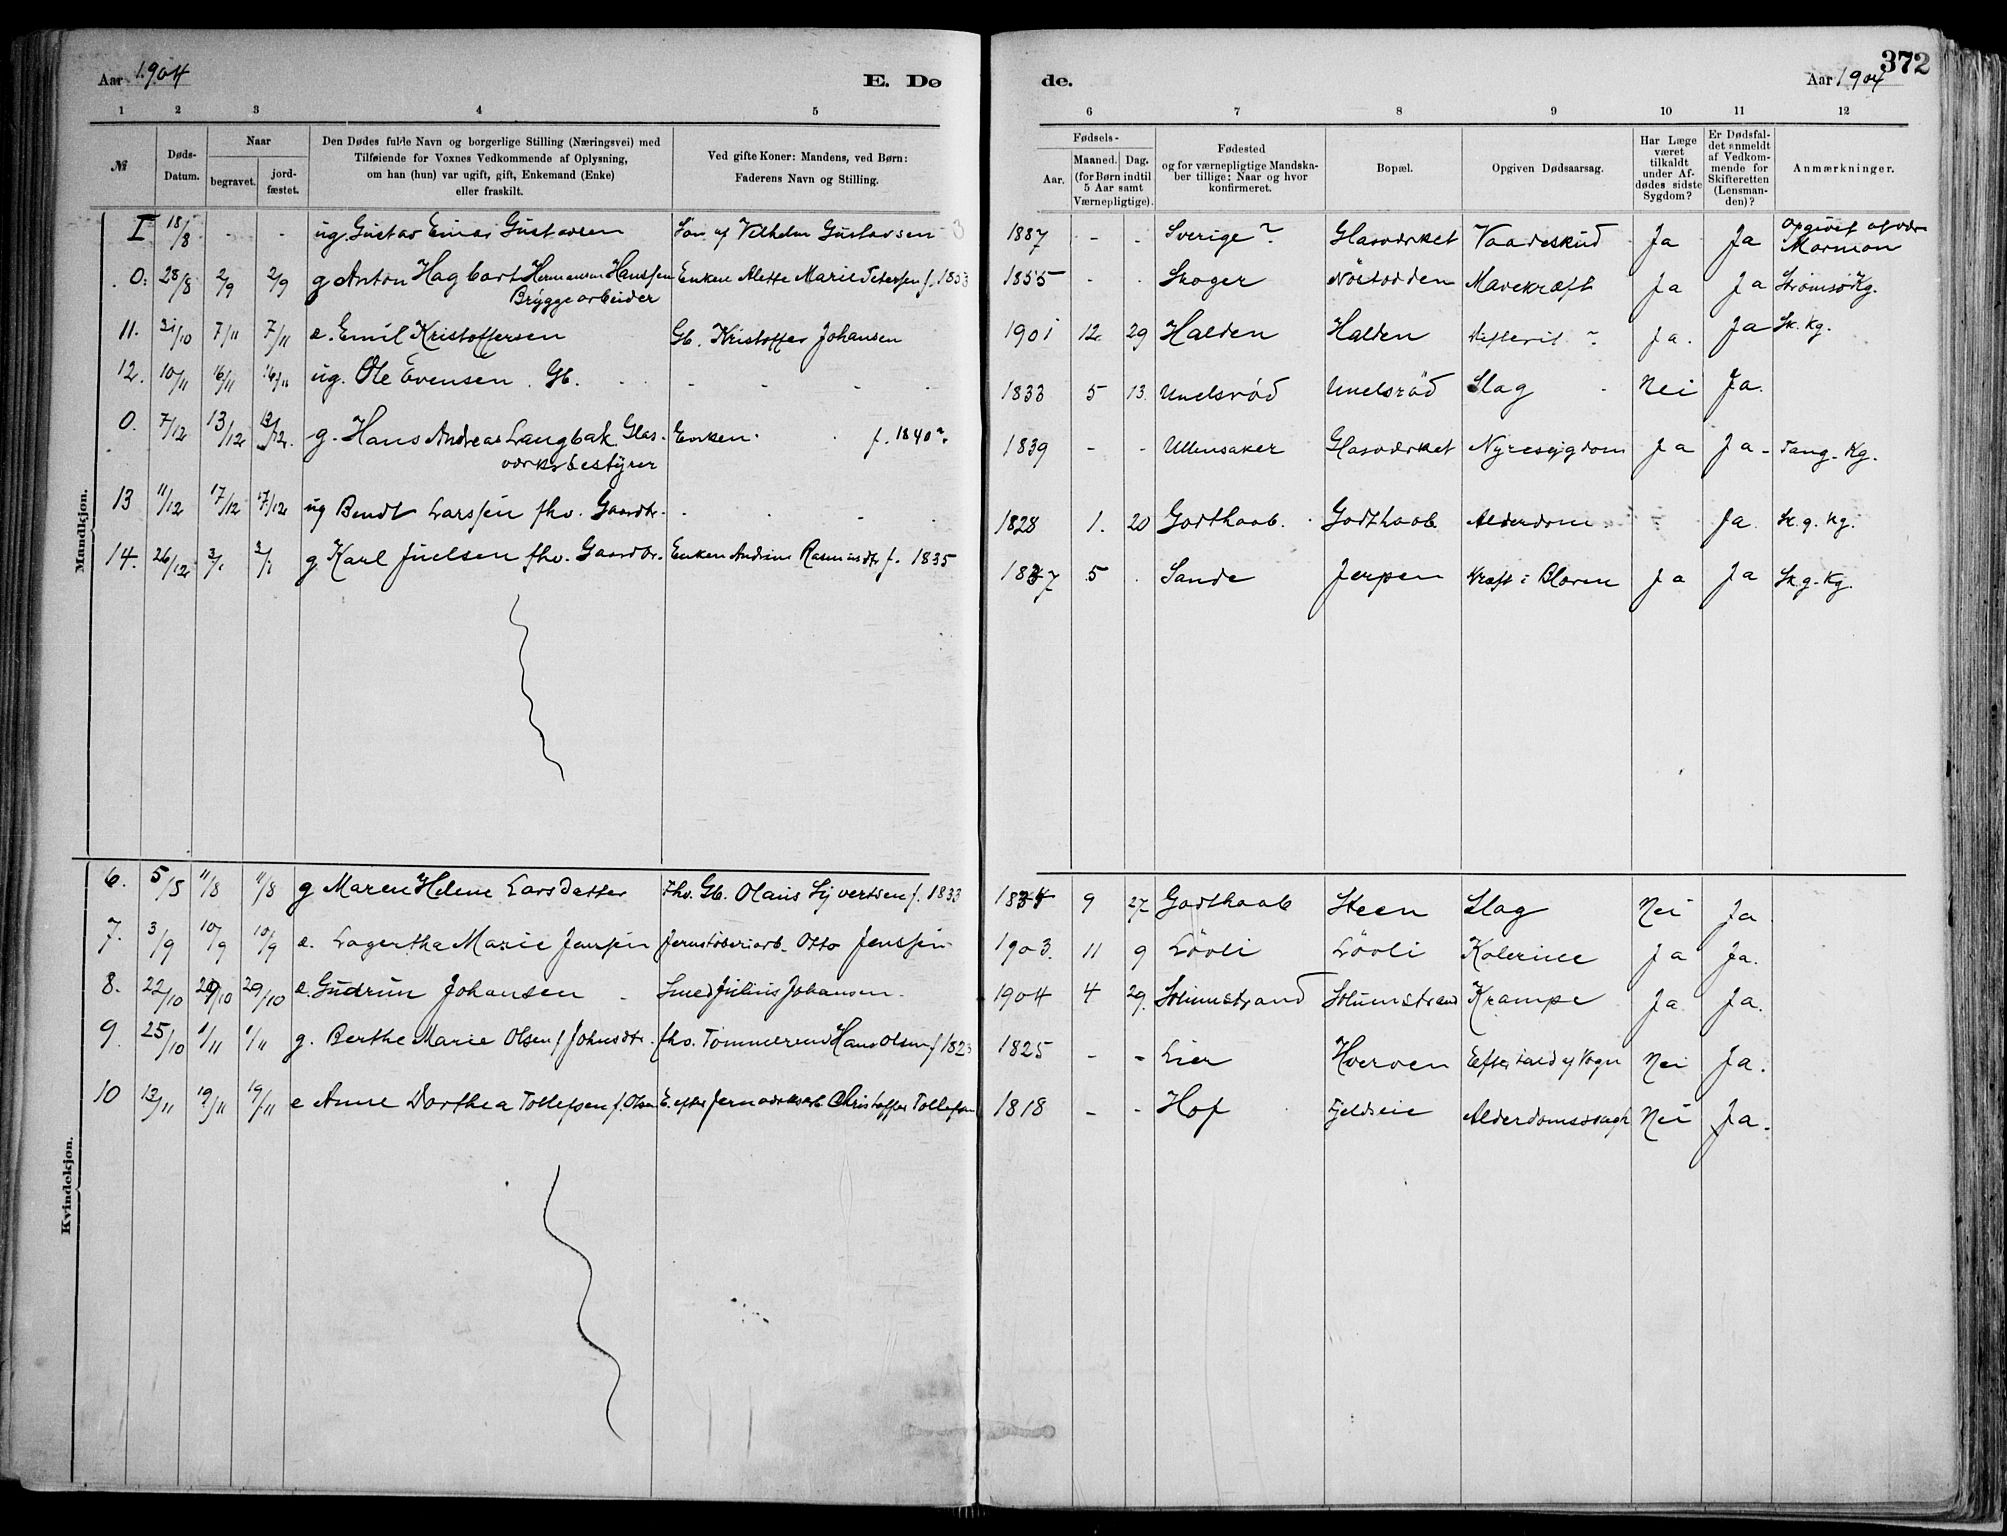 372
Aar 1904 E. Dø
de. Aar 1904
1 2 3 4 5
6 7 8 9 10 11 12
№
Døds-
Datum.
Naar
begravet.
jord-
fæstet.
Den Dødes fulde Navn og borgerlige Stilling (Næringsvei) med
Tilføiende for Voxnes Vedkommende af Oplysning,
om han (hun) var ugift, gift, Enkemand (Enke)
eller fraskilt.
Ved gifte Koner: Mandens, ved Børn:
Faderens Navn og Stilling.
Fødsels-
Aar.
Maaned. Dag.
(for Børn indtil
5 Aar samt
Værnepligtige).
Fødested
og for værnepligtige Mandska-
ber tillige: Naar og hvor
konfirmeret.
Bopæl.
Opgiven Dødsaarsag.
Har Læge
været
tilkaldt
under Af-
dødes sidste
Sygdom?
Er Dødsfal-
det anmeldt
af Vedkom-
mende for
Skifteretten
(Lensman-
den)?
Anmærkninger.
Mandkjøn.
I 18/8 - - ug. Gustav Einar Gustavsen Søn af Vilhelm Gustavsen 1887 - - Sverige? Glasværket Vaadeskud Ja Ja Opgivet at være
Mormon
0. 28/8 2/9 2/9 g Anton Hagbart Hermansen Hanssen Enken Alette Marie Petersen f. 1853 1855 - - Skoger Nöstodden Mavekræft Ja Ja Strømsø Kg.
Bryggearbeider
11. 31/10 7/11 7/11 e. Emil Kristoffersen Gb. Kristoffer Johansen 1901 12 29 Halden Halden Defterit? Ja. Ja Sk. Kg.
12. 10/11 16/11 16/11 ug. Ole Evensen. Gb. - - - - 1833 5 13. Unelsröd Unelsröd Slag Nei Ja.
0. 7/12 13/12 13/12. g. Hans Andreas Langbak Glas- Enken. f. 1840?. 1839 - - Ullensaker Glasværket Nyresygdom Ja Ja - Tang. Kg.
værksbestyrer
13 11/12 17/12 17/12 ug Bendt Larssen fhv. Gaardbr. - - - - 1828 1. 20 Godthaab. Godthaab Alderdom Ja. Sk. g. Kg.
14. 26/12 3/1 3/1 g Karl Juelsen fhv. Gaardbr. Enken Andrine Rasmusdtr f. 1835 1837 5 Sande Jerpen Kræft i Blæren Ja Ja Sk. g. Kg.
Kvindekjøn.
6. 5/5 11/8 11/8 g Maren Helene Larsdatter fhv. Gb. Olaus Syvertsen f. 1833 1834 9 27 Godthaab Steen Slag Nei Ja
7. 3/9 10/9 10/9 e. Lagertha Marie Jenssen Jernstöberiarb. Otto Jenssen 1903. 11 9 Lövli Lövli Kolerine Ja Ja.
8. 22/10 29/10 29/10 e. Gudrun Johansen Smed Julius Johansen. 1904 4 29. Solumstrand Solumstrand Krampe Ja Ja.
9. 25/10 1/11 1/11 g. Berthe Marie Olsen f Johnsdtr. fhv. Tømmermand Hans Olsen f 1823 1825 - - Lier Hverven Efter Fald af Vogn Nei Ja.
10 13/11 19/11 19/11 e Anne Dorthea Tollefsen f. Olsen E. efter Jernværksarb Christoffer Tollefsen 1818 - - Hof Fjeldseie Alderdomssvagh. Nei Ja.